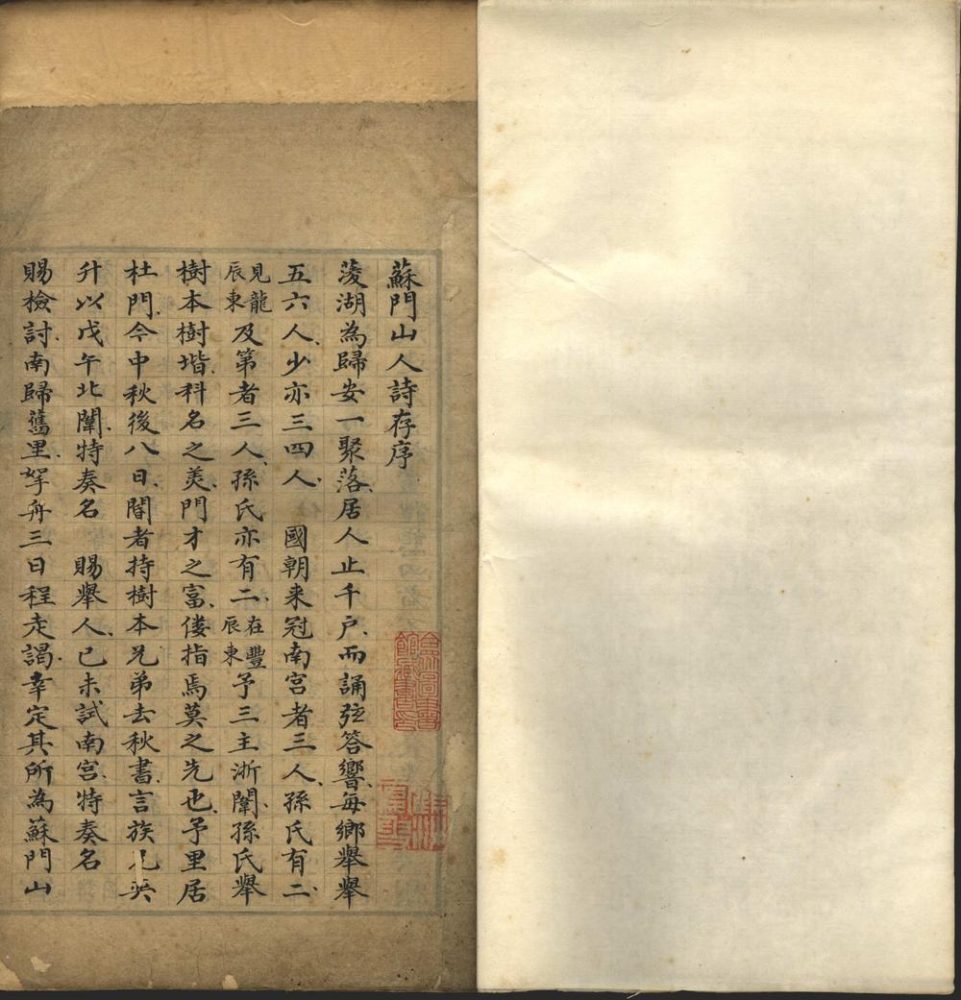 蘇門山人詩存序
蔆湖為歸安一聚落居人止千戶而誦弦答響每鄉舉舉
五六人少亦三四人　國朝来冠南宮者三人孫氏有二
見龍辰東及第者三人孫氏亦有二在豐辰東予三主浙闈孫氏舉
樹本樹堦科名之美門才之富僂指焉莫之先也予里居
杜門今中秋後八日閽者持樹本兄弟去秋書言族兄英
升以戊午北闈特奏名　賜舉人己未試南宮特奏名
賜檢討南歸舊里挐舟三日程走謁幸定其所為蘇門山
合眾圖書館藏書印